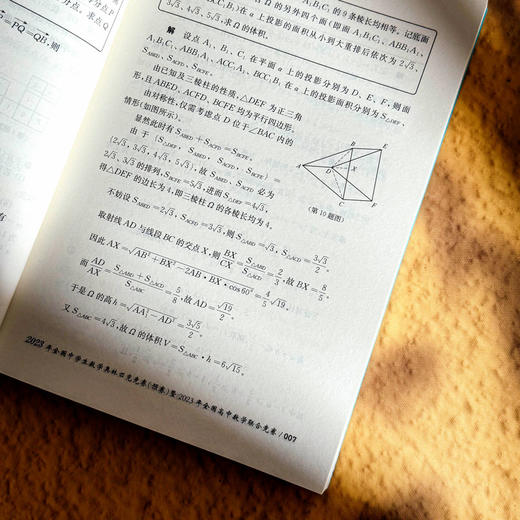 分点,求点Q
=PQ=QB,则
A₁B₁C₁的9条棱长均相等。记底面
的另外四个面(即面A₁B₁C₁、ABB₁A₁、
BCC₁B₁)在α上投影的面积从小到大重排后依次为2√3、
3√3、4√3、5√3,求Ω的体积.
解 设点A₁、B₁、C₁在平面α上的投影分别为D、E、F,则面
A₁B₁C₁、ABB₁A₁、ACC₁A₁、BCC₁B₁在α上的投影面积分别为S△DEF、
S_ABED、S_ACFD、S_BCFE.
由已知及三棱柱的性质,△DEF为正三角
形,且ABED、ACFD、BCFE均为平行四边形.
由对称性,仅需考虑点D位于∠BAC内的
情形(如图所示).
显然此时有S_ABED+S_ACFD=S_BCFE.
由于{S△DEF, S_ABED, S_ACFD, S_BCFE}=
{2√3, 3√3, 4√3, 5√3},故S_ABED、S_ACFD必为
2√3、3√3的排列,S_BCFE=5√3,进而S△DEF=4√3,
得△DEF的边长为4,即三棱柱Ω的各棱长均为4.
A B C D E F X
(第10题图)
不妨设S_ABED=2√3,S_ACFD=3√3,则S△ABD=√3,S△ACD=3√3/2.
取射线AD与线段BC的交点X,则BX/CX=S△ABD/S△ACD=2/3,故BX=8/5.
因此AX=√(AB²+BX²−2AB·BX·cos60°)=4/5√19.
而AD/AX=(S△ABD+S△ACD)/S△ABC=5/8,故AD=√19/2.
于是Ω的高h=√(AA₁²−AD²)=3√5/2.
又S△ABC=4√3,故Ω的体积V=S△ABC·h=6√15.
2023年全国中学生数学奥林匹克竞赛(预赛)暨2023年全国高中数学联合竞赛/007